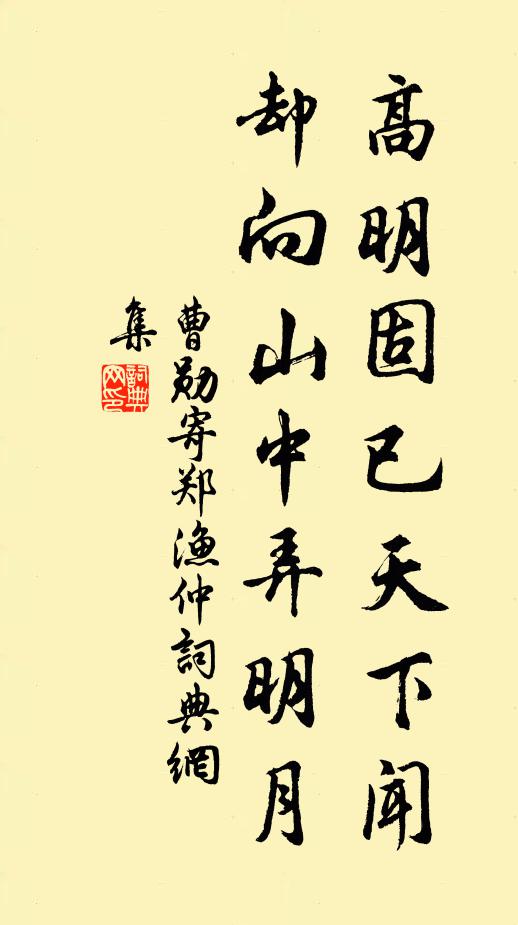 高明固已天下闻
却向山中弄明月
曹勋寄郑渔仲詞典網
集
詞典
网印